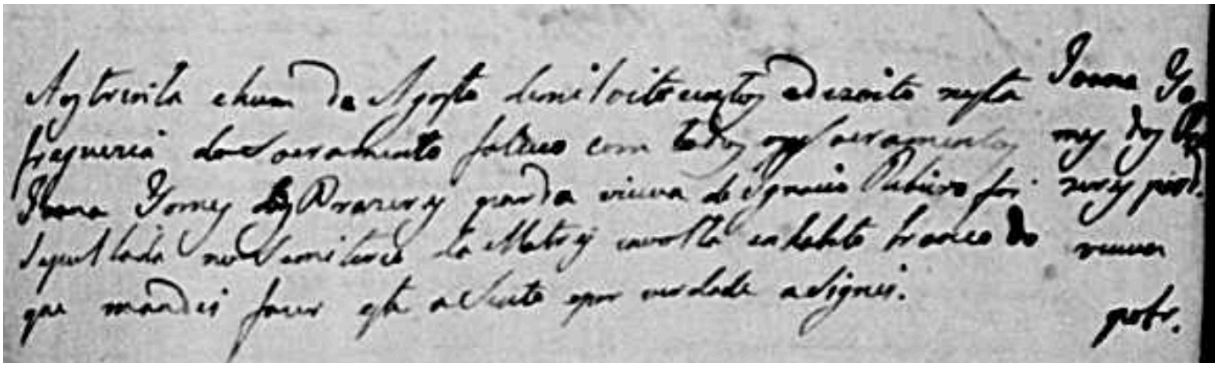 Aos trinta ehum de Agosto demil oito centos edezoito nesta
freguezia do Sacramento faleceo com todos os Sacramentos
Joana Gomes dos Prazeres parda viuva de Ignacio foi
Sepultada no Semiterio da Matriz involta em habito branco do
que mandei fazer este aSento epor verdade aSignei.
Joana Go
mes dos Pra
zeres pard.
viuva
pobr.